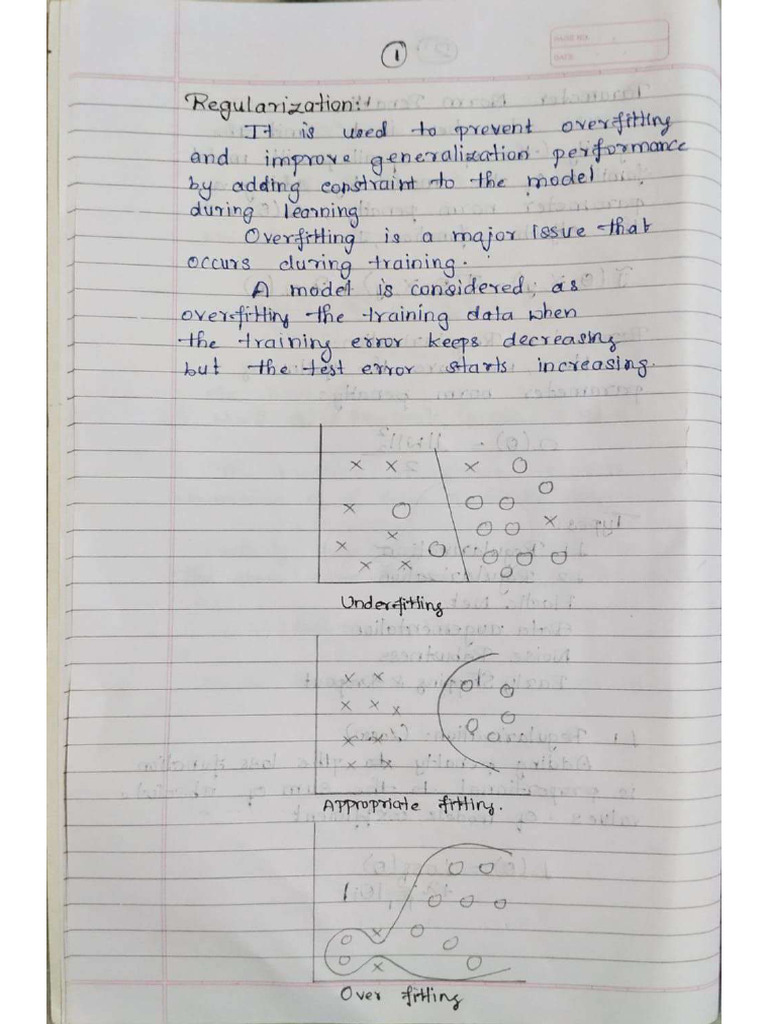 1
PAGE NO.
DATE
Regularization:-
It is used to prevent overfitting
and improve generalization performance
by adding constraint to the model
during learning
Overfitting is a major issue that
occurs during training.
A model is considered as
overfitting the training data when
the training error keeps decreasing
but the test error starts increasing.
Underfitting
Appropriate fitting.
Over fitting